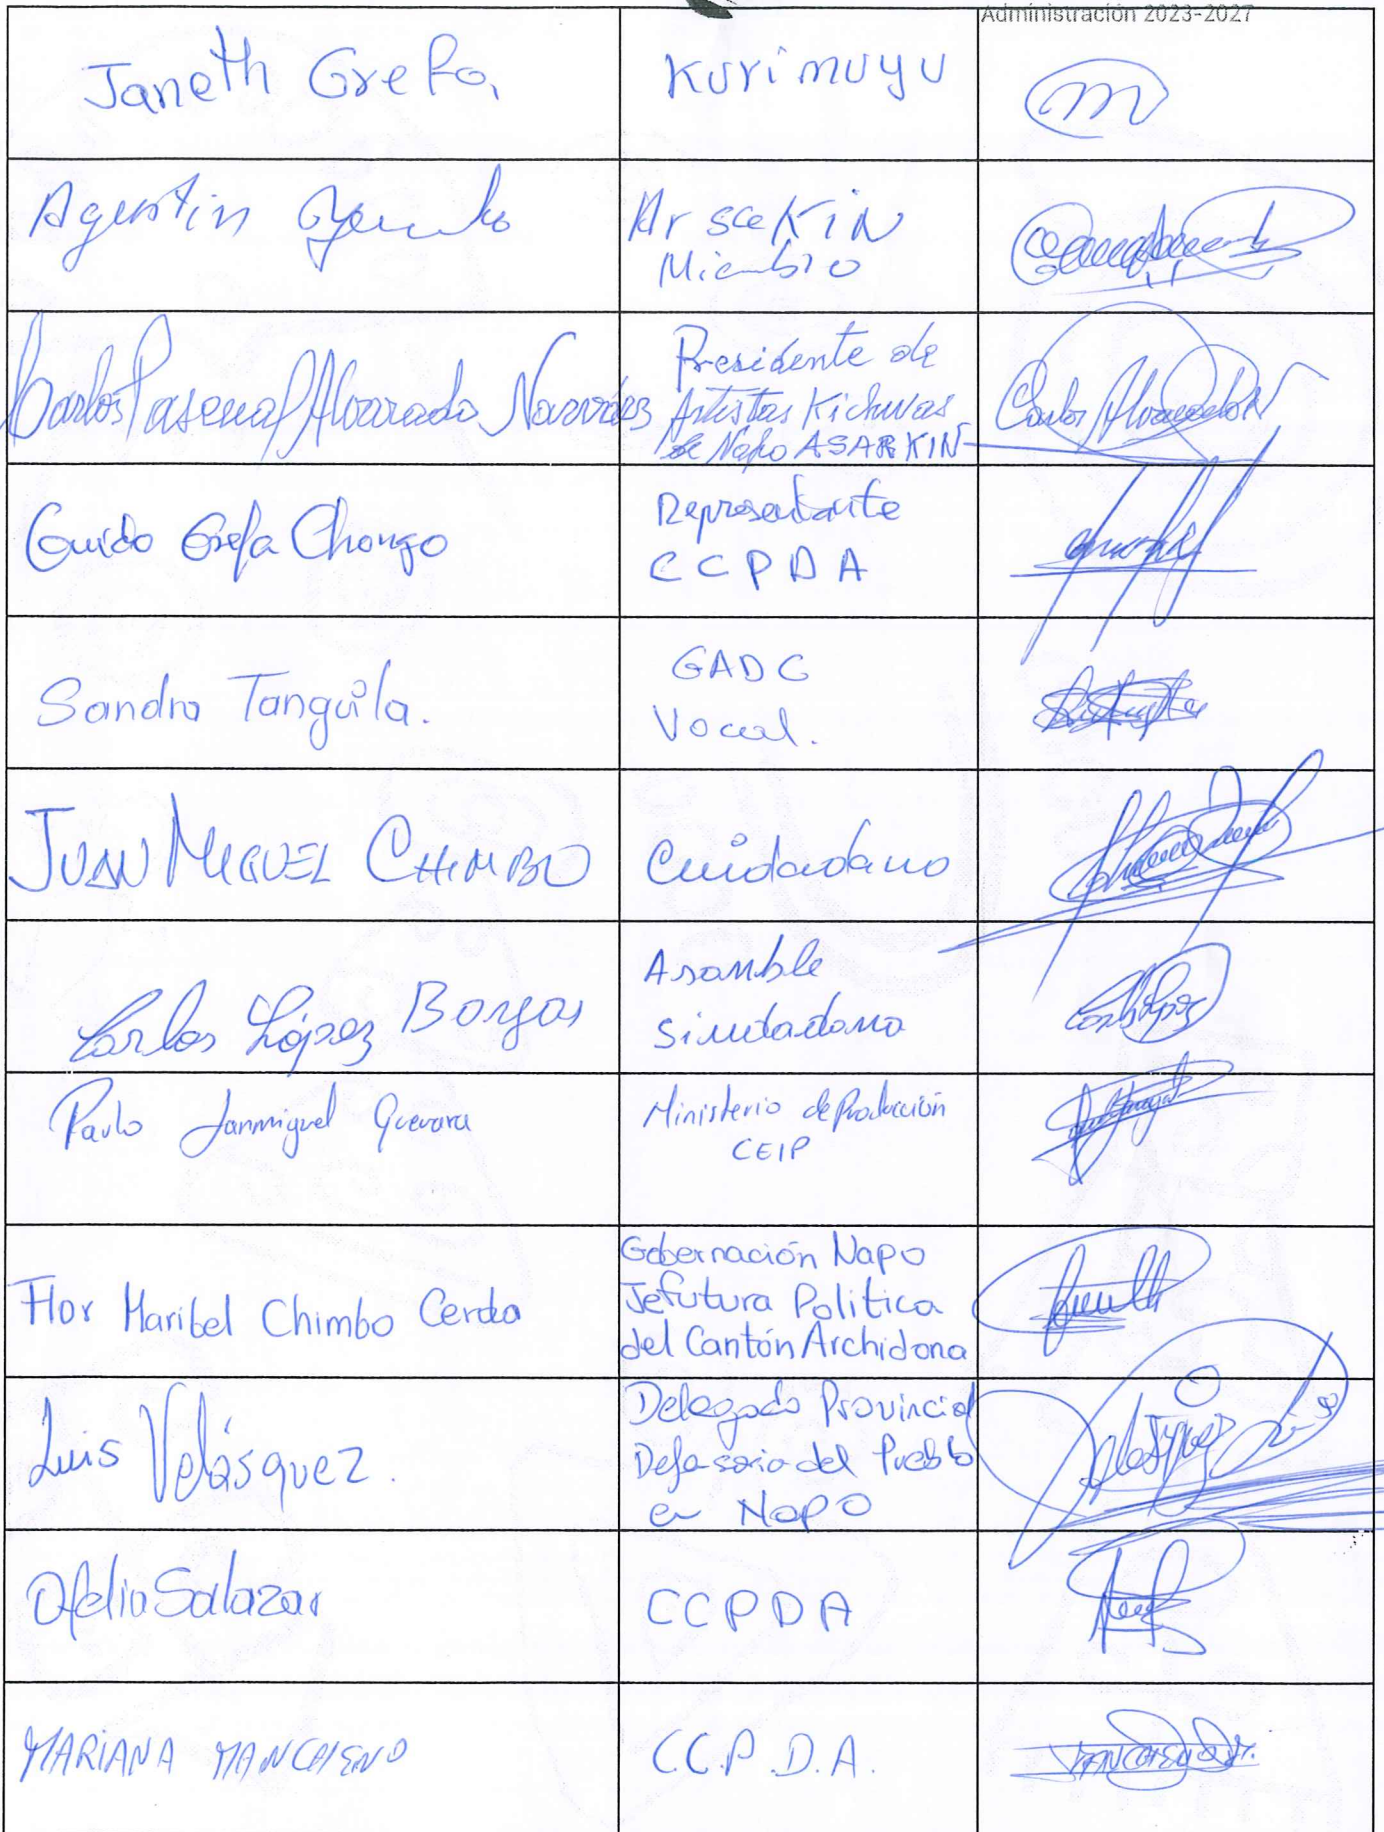 Administración 2023-2027
Janeth Grefa,
Kurimuyu
Agustin
ArsceKiN
Miembro
Carlos Pascual Alvarado Narváez
Presidente de
Artistas Kichwas
de Napo ASARKIN
Carlos Alvarado N
Guido Grefa Chongo
Representante
CCPDA
Sandra Tanguila.
GADC
Vocal.
JUAN MIGUEL CHIMBO
Cuidadano
Carlos López Borjas
Asamble
Siudadana
Paulo Sanmiguel Guevara
Ministerio de Producción
CEIP
Flor Maribel Chimbo Cerda
Gobernación Napo
Jefutura Politica
del Cantón Archidona
Luis Velásquez.
Delegado Provincial
Defensoria del Pueblo
en Napo
Ofelia Salazar
CCPDA
MARIANA MANCHENO
C.C.P.D.A.